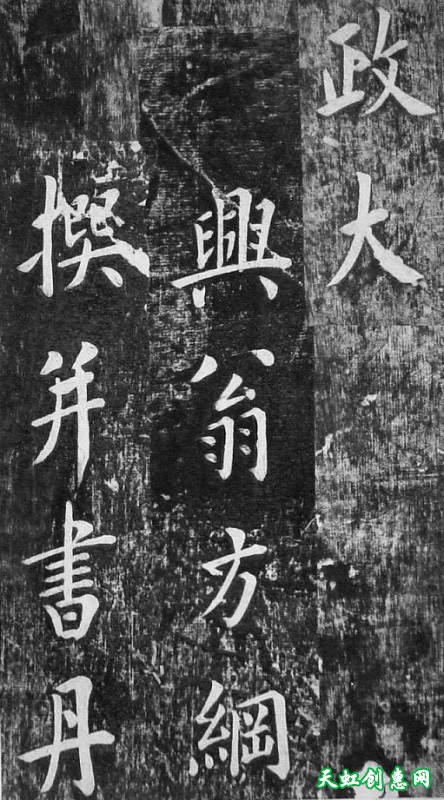 政大
興翁方綱
撰并書丹
天虹创惠网